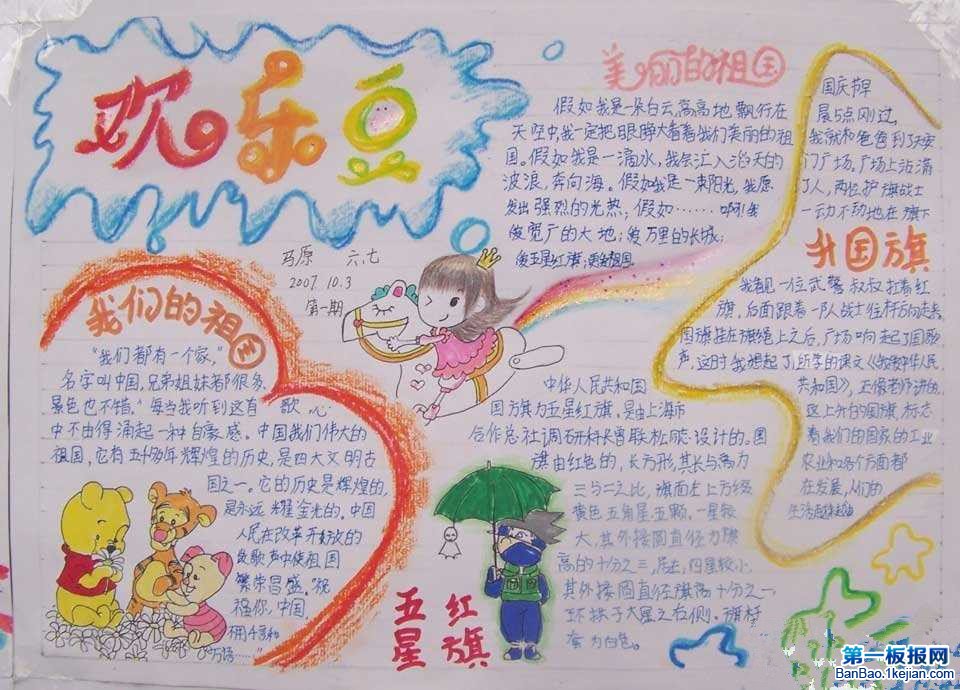 欢乐豆
马原 六.七
2007.10.3
第一期
美丽的祖国
假如我是一朵白云,高高地飘行在
天空中,我一定把眼睁大看看我们美丽的祖
国。假如我是一滴水,我会汇入滔天的
波浪,奔向海。假如我是一束阳光,我愿
发出强烈的光热;假如……啊!我
爱宽广的大地;爱万里的长城;
爱五星红旗;更爱祖国
升国旗
国庆节早
晨5点刚过,
我就和爸爸到天安
门广场。广场上站满
了人,两位护旗战士
一动不动地在旗下
我看见一位武警叔叔扛着红
旗,后面跟着一队战士往杆方向走去
国旗挂在旗绳上之后,广场响起了国歌
声,这时我想起了所学的课文《中华人民
共和国》,老师讲的
这上升的国旗标志
着我们的国家的工业
农业和各个方面都
在发展,人们的
生活越来越
我们的祖国
“我们都有一个家,
名字叫中国,兄弟姐妹都很多,
景色也不错。”每当我听到这首歌,心
中不由得涌起一种自豪感。中国我们伟大的
祖国,它有五千多年辉煌的历史,是四大文明古
国之一。它的历史是辉煌的,
是永远耀金光的。中国
人民在改革开放的
歌声中使祖国
繁荣昌盛。祝
福你,中国,
用千言和
万语……”
五星红旗
中华人民共和国
国旗为五星红旗,是由上海市
合作总社调研科长曾联松同志设计的。国
旗由红色的,长方形,其长与高为
三与二之比,旗面左上方缀
黄色五角星五颗。一星较
大,其外接圆直径为旗
高的十分之三,居左,四星较小
其外接圆直径旗高十分之一
环拱于大星之右侧。旗杆
套为白色。
第一板报网
BanBao.1kejian.com